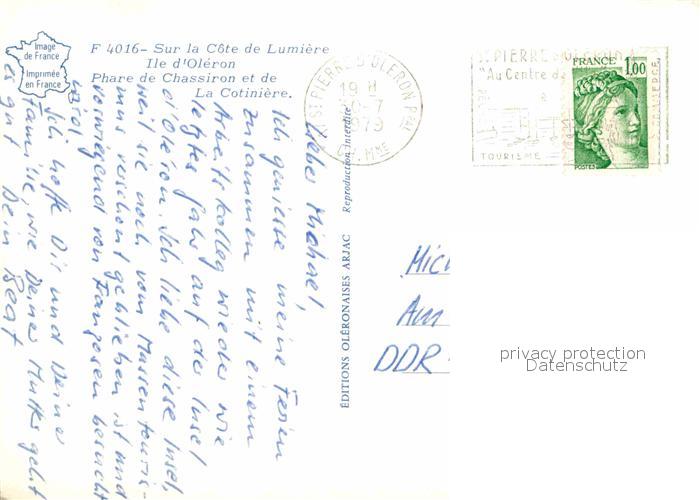 Image
de France
Imprimée
en France
F 4016 – Sur la Côte de Lumière
Ile d'Oléron
Phare de Chassiron et de
La Cotinière.
Liebes Michael,
Ich geniesse meine Ferien
zusammen mit einem
Arbeitskolleg wieder wie
letztes Jahr auf der Insel
d'Oléron. Ich liebe diese Insel,
weil sie noch vom Massentouris-
mus verschont geblieben ist und
vorwiegend von Franzosen besucht
wird.
Ich hoffe Dir und Deiner
Familie, wie Deiner Mutter geht
es gut. Dein Beat
Reproduction Interdite
ÉDITIONS OLÉRONAISES ARJAC
ST PIERRE D'OLERON PPAL
19 H
-7
1979
CH. MME
ST PIERRE D'OLERON
"Au Centre de
TOURISME
COMMERCE
FRANCE
1,00
POSTES
Am
DDR
privacy protection
Datenschutz